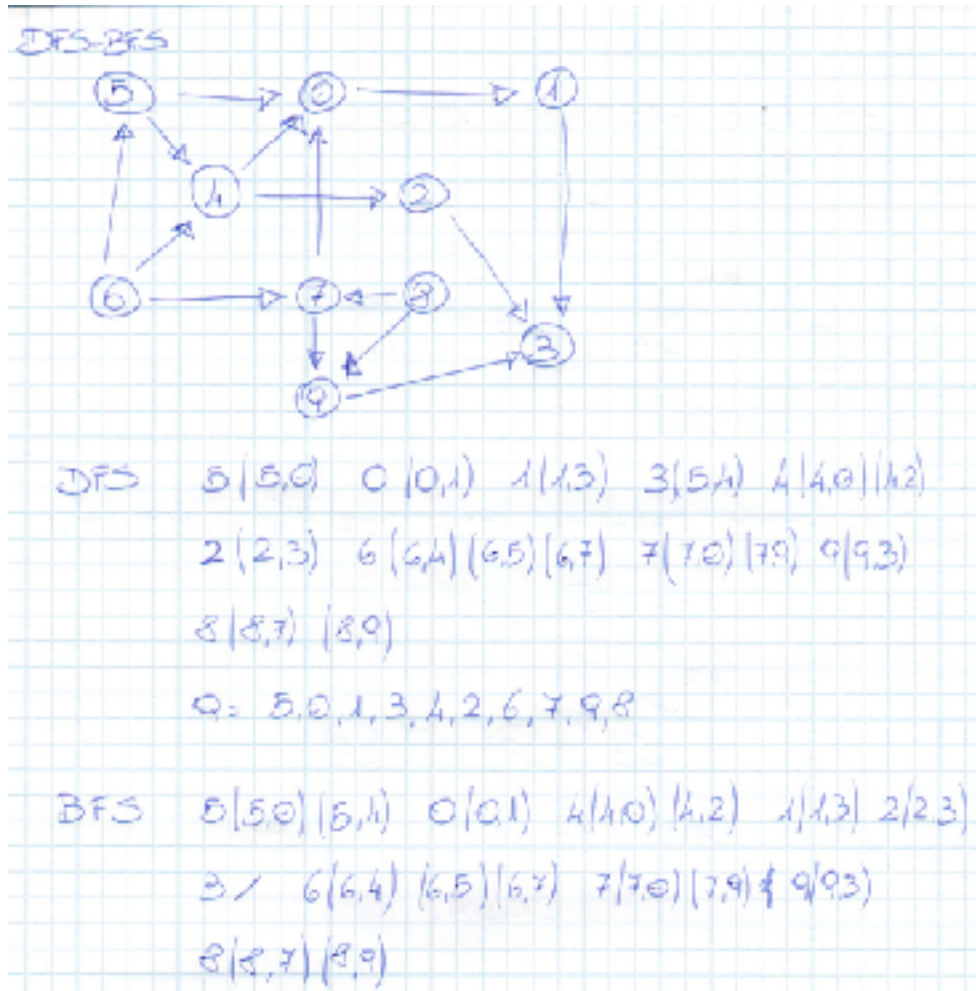 DFS-BFS
5 0 1
4 2
6 7 8
3
9
DFS 5(5,0) 0(0,1) 1(1,3) 3(5,4) 4(4,0)(4,2)
2(2,3) 6(6,4)(6,5)(6,7) 7(7,0)(7,9) 9(9,3)
8(8,7) (8,9)
Q= 5,0,1,3,4,2,6,7,9,8
BFS 5(5,0)(5,4) 0(0,1) 4(4,0)(4,2) 1(1,3) 2(2,3)
3/ 6(6,4)(6,5)(6,7) 7(7,0)(7,9) 9(9,3)
8(8,7)(8,9)